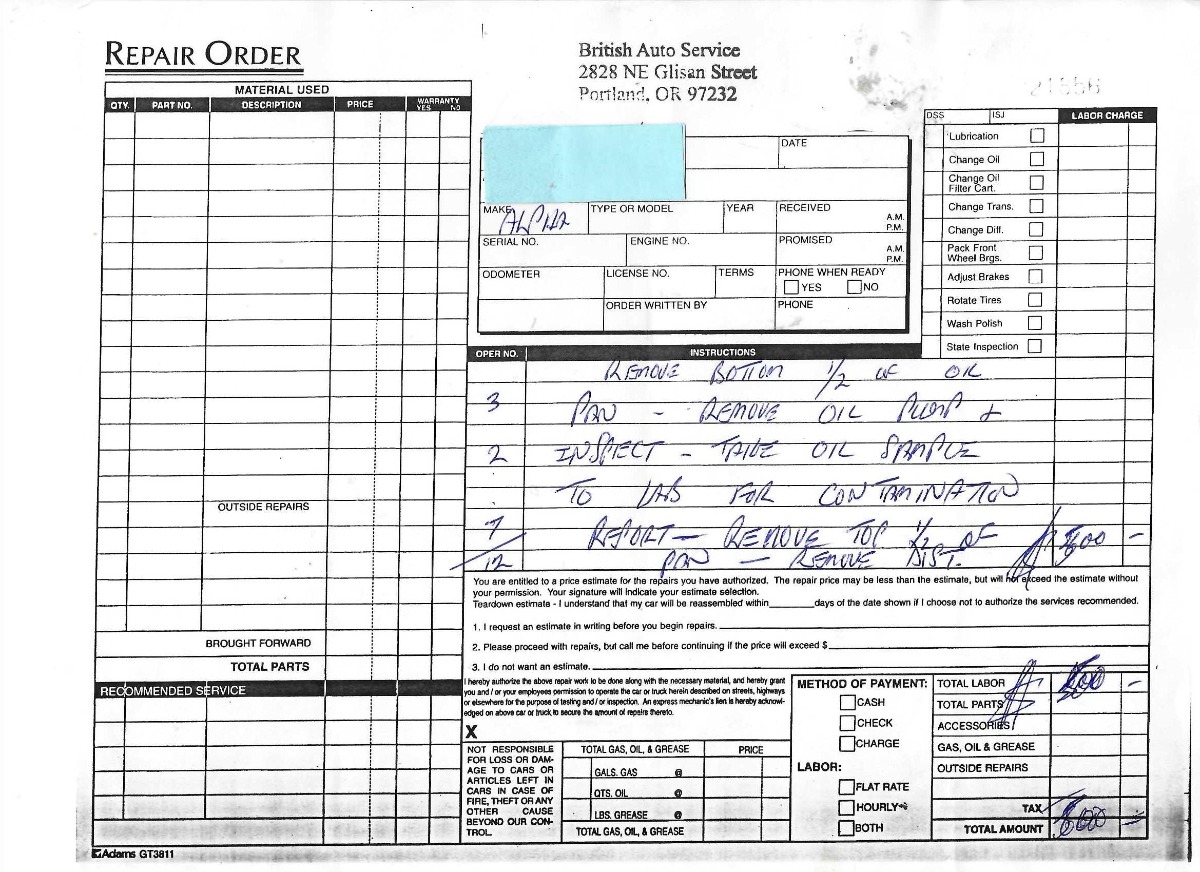 REPAIR ORDER
British Auto Service
2828 NE Glisan Street
Portland, OR 97232
21556
MATERIAL USED
QTY. PART NO. DESCRIPTION PRICE WARRANTY YES NO
OUTSIDE REPAIRS
BROUGHT FORWARD
TOTAL PARTS
RECOMMENDED SERVICE
DATE
MAKE ALPHA TYPE OR MODEL YEAR RECEIVED A.M. P.M.
SERIAL NO. ENGINE NO. PROMISED A.M. P.M.
ODOMETER LICENSE NO. TERMS PHONE WHEN READY
YES NO
ORDER WRITTEN BY PHONE
DSS ISJ LABOR CHARGE
Lubrication
Change Oil
Change Oil
Filter Cart.
Change Trans.
Change Diff.
Pack Front
Wheel Brgs.
Adjust Brakes
Rotate Tires
Wash Polish
State Inspection
OPER NO. INSTRUCTIONS
REMOVE BOTTOM 1/2 OF OIL
3 PAN - REMOVE OIL PUMP +
2 INSPECT - TAKE OIL SAMPLE
TO LAB FOR CONTAMINATION
7 REPORT - REMOVE TOP 1/2 OF
12 PAN - REMOVE DIST.
You are entitled to a price estimate for the repairs you have authorized. The repair price may be less than the estimate, but will not exceed the estimate without
your permission. Your signature will indicate your estimate selection.
Teardown estimate - I understand that my car will be reassembled within________days of the date shown if I choose not to authorize the services recommended.
1. I request an estimate in writing before you begin repairs.
2. Please proceed with repairs, but call me before continuing if the price will exceed $
3. I do not want an estimate.
I hereby authorize the above repair work to be done along with the necessary material, and hereby grant
you and / or your employees permission to operate the car or truck herein described on streets, highways
or elsewhere for the purpose of testing and / or inspection. An express mechanic's lien is hereby acknowl-
edged on above car or truck to secure the amount of repairs thereto.
X
NOT RESPONSIBLE
FOR LOSS OR DAM-
AGE TO CARS OR
ARTICLES LEFT IN
CARS IN CASE OF
FIRE, THEFT OR ANY
OTHER CAUSE
BEYOND OUR CON-
TROL.
TOTAL GAS, OIL, & GREASE PRICE
GALS. GAS @
QTS. OIL @
LBS. GREASE @
TOTAL GAS, OIL, & GREASE
METHOD OF PAYMENT:
CASH
CHECK
CHARGE
LABOR:
FLAT RATE
HOURLY
BOTH
TOTAL LABOR
TOTAL PARTS
ACCESSORIES
GAS, OIL & GREASE
OUTSIDE REPAIRS
TAX
TOTAL AMOUNT
Adams GT3811